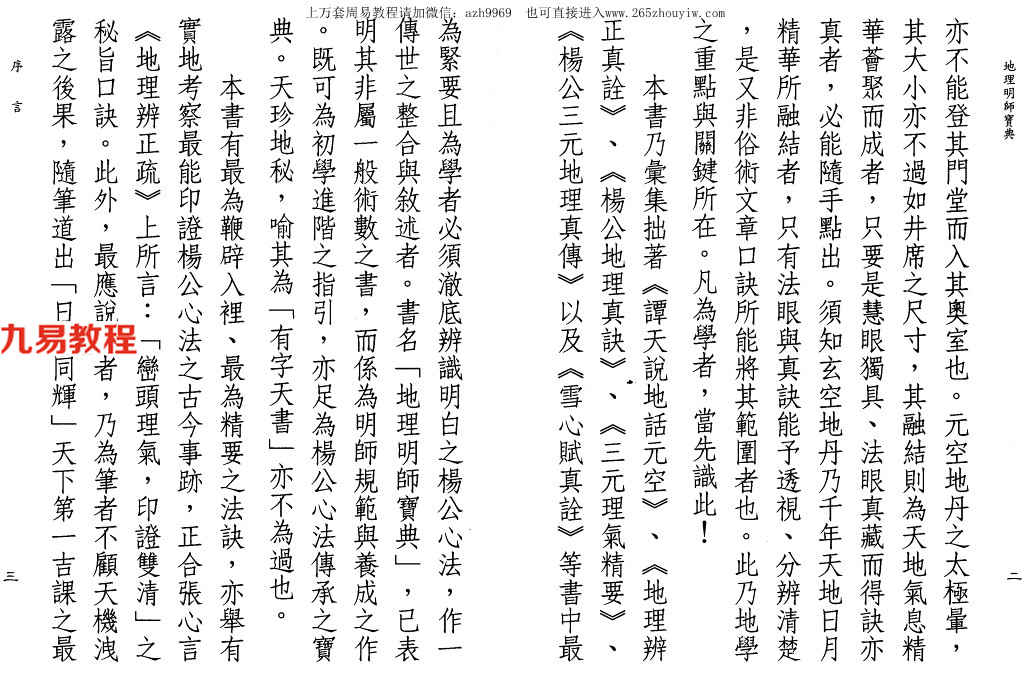 上万套周易教程请加微信：azh9969　也可直接进入www.265zhouyiw.com
地理明師寶典
亦不能登其門堂而入其奧室也。元空地丹之太極暈，
其大小亦不過如井席之尺寸，其融結則為天地氣息精
華薈聚而成者，只要是慧眼獨具、法眼真藏而得訣亦
真者，必能隨手點出。須知玄空地丹乃千年天地日月
精華所融結者，只有法眼與真訣能予透視、分辨清楚
，是又非俗術文章口訣所能將其範圍者也。此乃地學
之重點與關鍵所在。凡為學者，當先識此！
本書乃彙集拙著《譚天說地話元空》、《地理辨
正真詮》、《楊公地理真訣》、《三元理氣精要》、
《楊公三元地理真傳》以及《雪心賦真詮》等書中最
二
為緊要且為學者必須澈底辨識明白之楊公心法，作一
傳世之整合與敘述者。書名「地理明師寶典」，已表
明其非屬一般術數之書，而係為明師規範與養成之作
。既可為初學進階之指引，亦足為楊公心法傳承之寶
典。天珍地秘，喻其為「有字天書」亦不為過也。
本書有最為鞭辟入裡、最為精要之法訣，亦舉有
實地考察最能印證楊公心法之古今事跡，正合張心言
《地理辨正疏》上所言：「巒頭理氣，印證雙清」之
秘旨口訣。此外，最應說者，乃為筆者不顧天機洩
露之後果，隨筆道出「日同輝」天下第一吉課之最
序言
三
九易教程